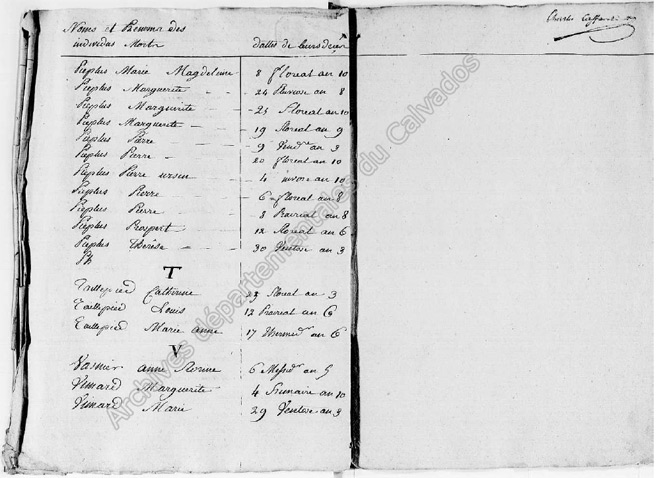 Noms et Prenoms des
individus Morts dattes de leurs deces
Pieplus Marie Magdeleine 8 floreal an 10
Pieplus Marguerite 24 Pluviose an 8
Pieplus Marguerite 25 floreal an 10
Pieplus Marguerite 19 floreal an 9
Pieplus Pierre 9 Vend.re an 3
Pieplus Pierre 20 floreal an 10
Pieplus Pierre ursin 4 nivose an 10
Pieplus Pierre 6 floreal an 8
Pieplus Pierre 3 Prairial an 8
Pieplus Prospert 12 floreal an 6
Pieplus therèse 30 Ventose an 3
T
Taillepied Catherine 23 floreal an 3
Taillepied Louis 12 Prairial an 6
Taillepied Marie anne 17 thermid.r an 6
V
Vasnier anne 6 Messid.r an 5
Vimard Marguerite 4 frimaire an 10
Vimard Marie 29 Ventose an 3
Charles
Archives départementales du Calvados